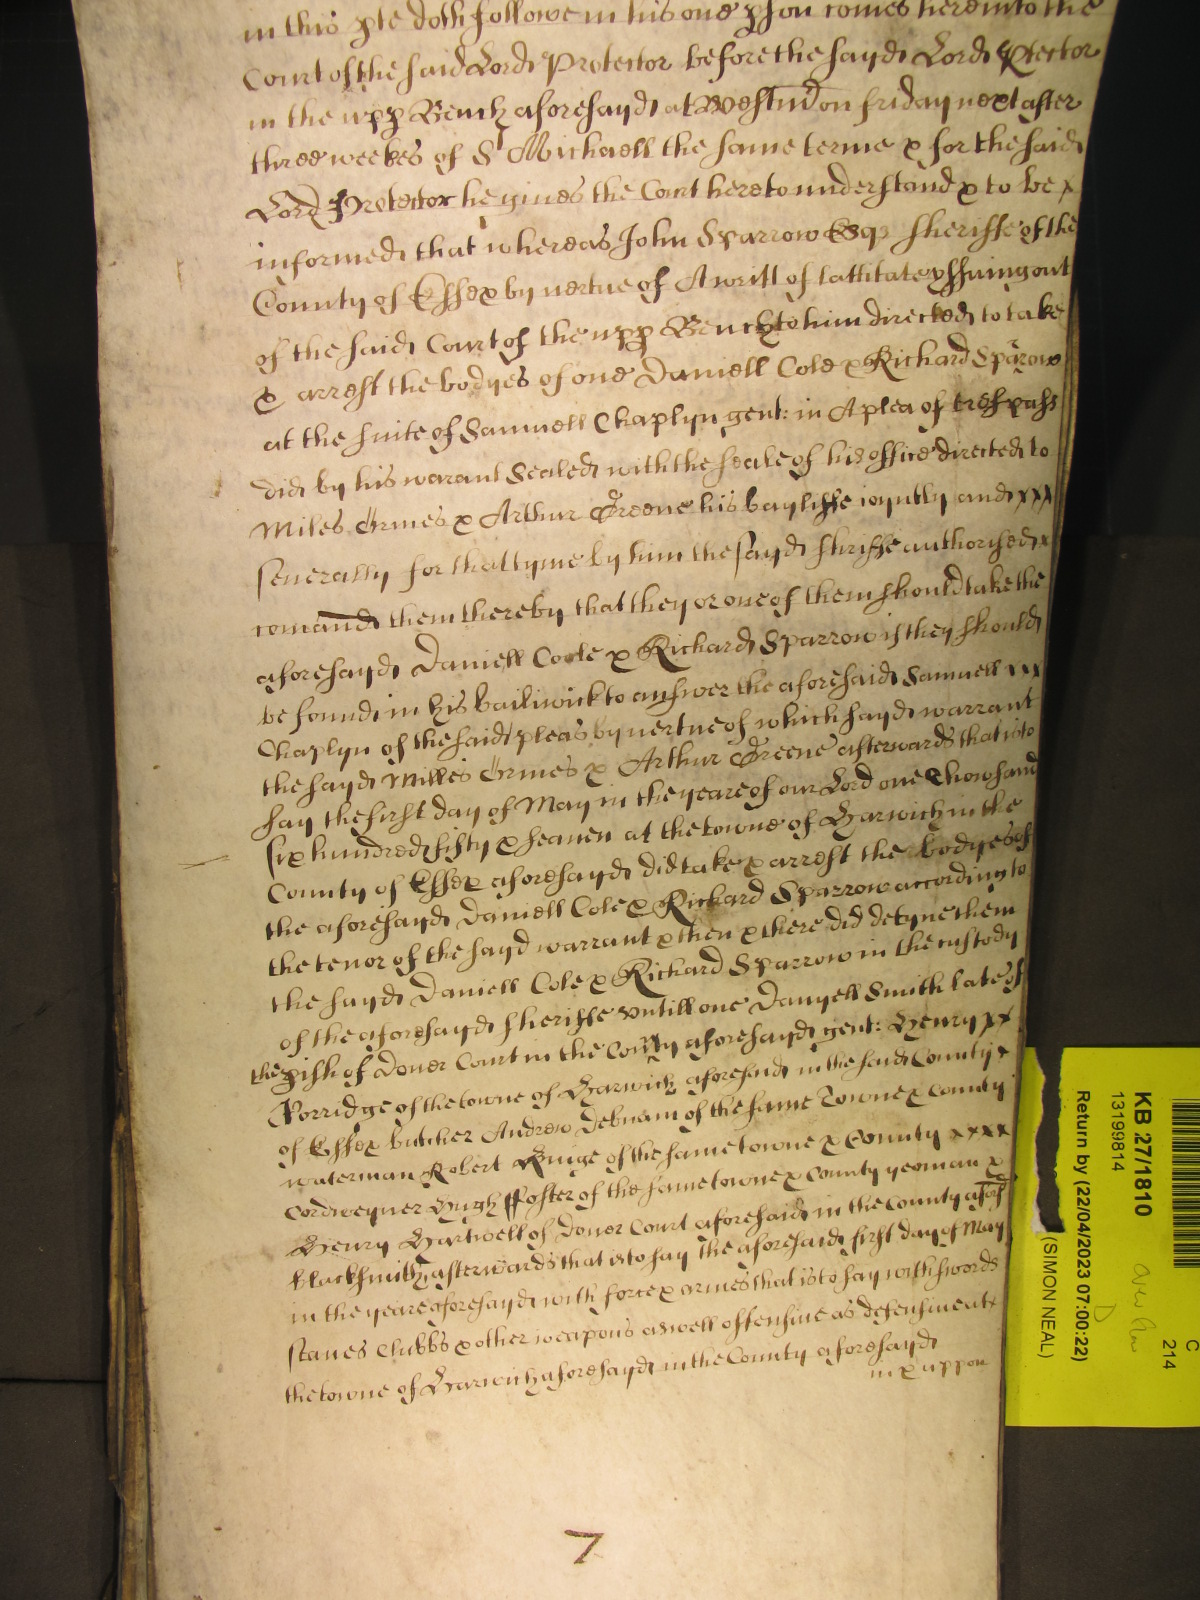 in this pte doth followe in his one pson comes here into the
Court of the said Lord Protector before the sayd Lord Ptector
in the upp Bench aforesayd at Westm on friday next after
three weekes of St Michaell the same terme & for the said
Lord Protector he gives the Court here to understand & to be x
informed that whereas John Sparrow Esqr sheriffe of the
County of Essex by vertue of A writt of lattitate yssuing out
of the said Court of the upp Bench to him directed to take
& arrest the bodyes of one Daniell Cole & Richard Sparow
at the suite of Samuell Chaplyn gent: in A plea of trespass
did by his warant Sealed with the seale of his office directed to
Miles Ormes & Arthur Greene his bayliffe ioyntly and xxx
severally for that tyme by him the sayd shriffe authorised x
comand them thereby that they or one of them should take the
aforesayd Daniell Coole & Richard Sparrow if they should
be found in his bailiwick to answer the aforesaid Samuell xxx
Chaplyn of the said pleas by vertue of which sayd warrant
the sayd Milles Ormes & Arthur Greene afterwards that is to
say the first day of May in the yeare of our Lord one thowsand
six hundred fifty & seaven at the towne of Harwich in the
County of Essex aforesayd did take & arrest the bodyes of
the aforesayd Daniell Cole & Rickard Sparrow according to
the tenor of the sayd warrant & then & there did detyne them
the sayd Daniell Cole & Rickard Sparrow in the custody
of the aforesayd sheriffe untill one Danyell Smith late of
the pish of Dover Court in the County aforesayd gent: Henry xx
Porridge of the towne of Harwich aforesaid in the said County x
of Essex butcher Andrew Debnam of the same Towne & County
waterman Robert Ruige of the same towne & County xxxx
Cordweyner Hugh ffoster of the same towne & County yeoman &
Henry Hartwell of Dover Court aforesaid in the County afores
blacksmith afterwards that is to say the aforesaid first day of May
in the yeare aforesayd with force & armes that is to say with swords
staves Clubbs & other weapons aswell offensive as defensive at x
the towne of Harwich aforesayd in the County aforesayd
in & uppon
7
C
214
KB 27/1810
13199814
Return by (22/04/2023 07:00:22)
D
(SIMON NEAL)